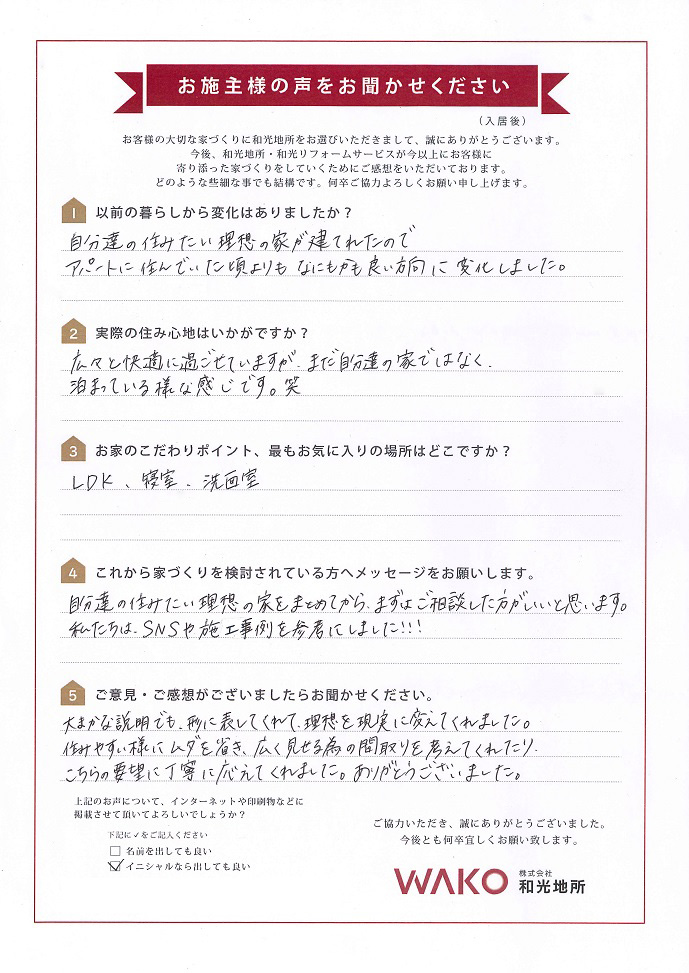 お施主様の声をお聞かせください
（入居後）
お客様の大切な家づくりに和光地所をお選びいただきまして、誠にありがとうございます。
今後、和光地所・和光リフォームサービスが今以上にお客様に
寄り添った家づくりをしていくためにご感想をいただいております。
どのような些細な事でも結構です。何卒ご協力よろしくお願い申し上げます。
1 以前の暮らしから変化はありましたか？
自分達の住みたい理想の家が建てれたので
アパートに住んでいた頃よりも なにもかも良い方向に変化しました。
2 実際の住み心地はいかがですか？
広々と快適に過ごせていますが、まだ自分達の家ではなく、
泊まっている様な感じです。笑
3 お家のこだわりポイント、最もお気に入りの場所はどこですか？
LDK、寝室、洗面室
4 これから家づくりを検討されている方へメッセージをお願いします。
自分達の住みたい理想の家をまとめてから、まずはご相談した方がいいと思います。
私たちは、SNSや施工事例を参考にしました!!!
5 ご意見・ご感想がございましたらお聞かせください。
大まかな説明でも、形に表してくれて、理想を現実に変えてくれました。
住みやすい様にムダを省き、広く見せる為の間取りを考えてくれたり、
こちらの要望に丁寧に応えてくれました。ありがとうございました。
上記のお声について、インターネットや印刷物などに
掲載させて頂いてよろしいでしょうか？
下記に✓をご記入ください
□ 名前を出しても良い
☑ イニシャルなら出しても良い
ご協力いただき、誠にありがとうございました。
今後とも何卒宜しくお願い致します。
WAKO 株式会社 和光地所